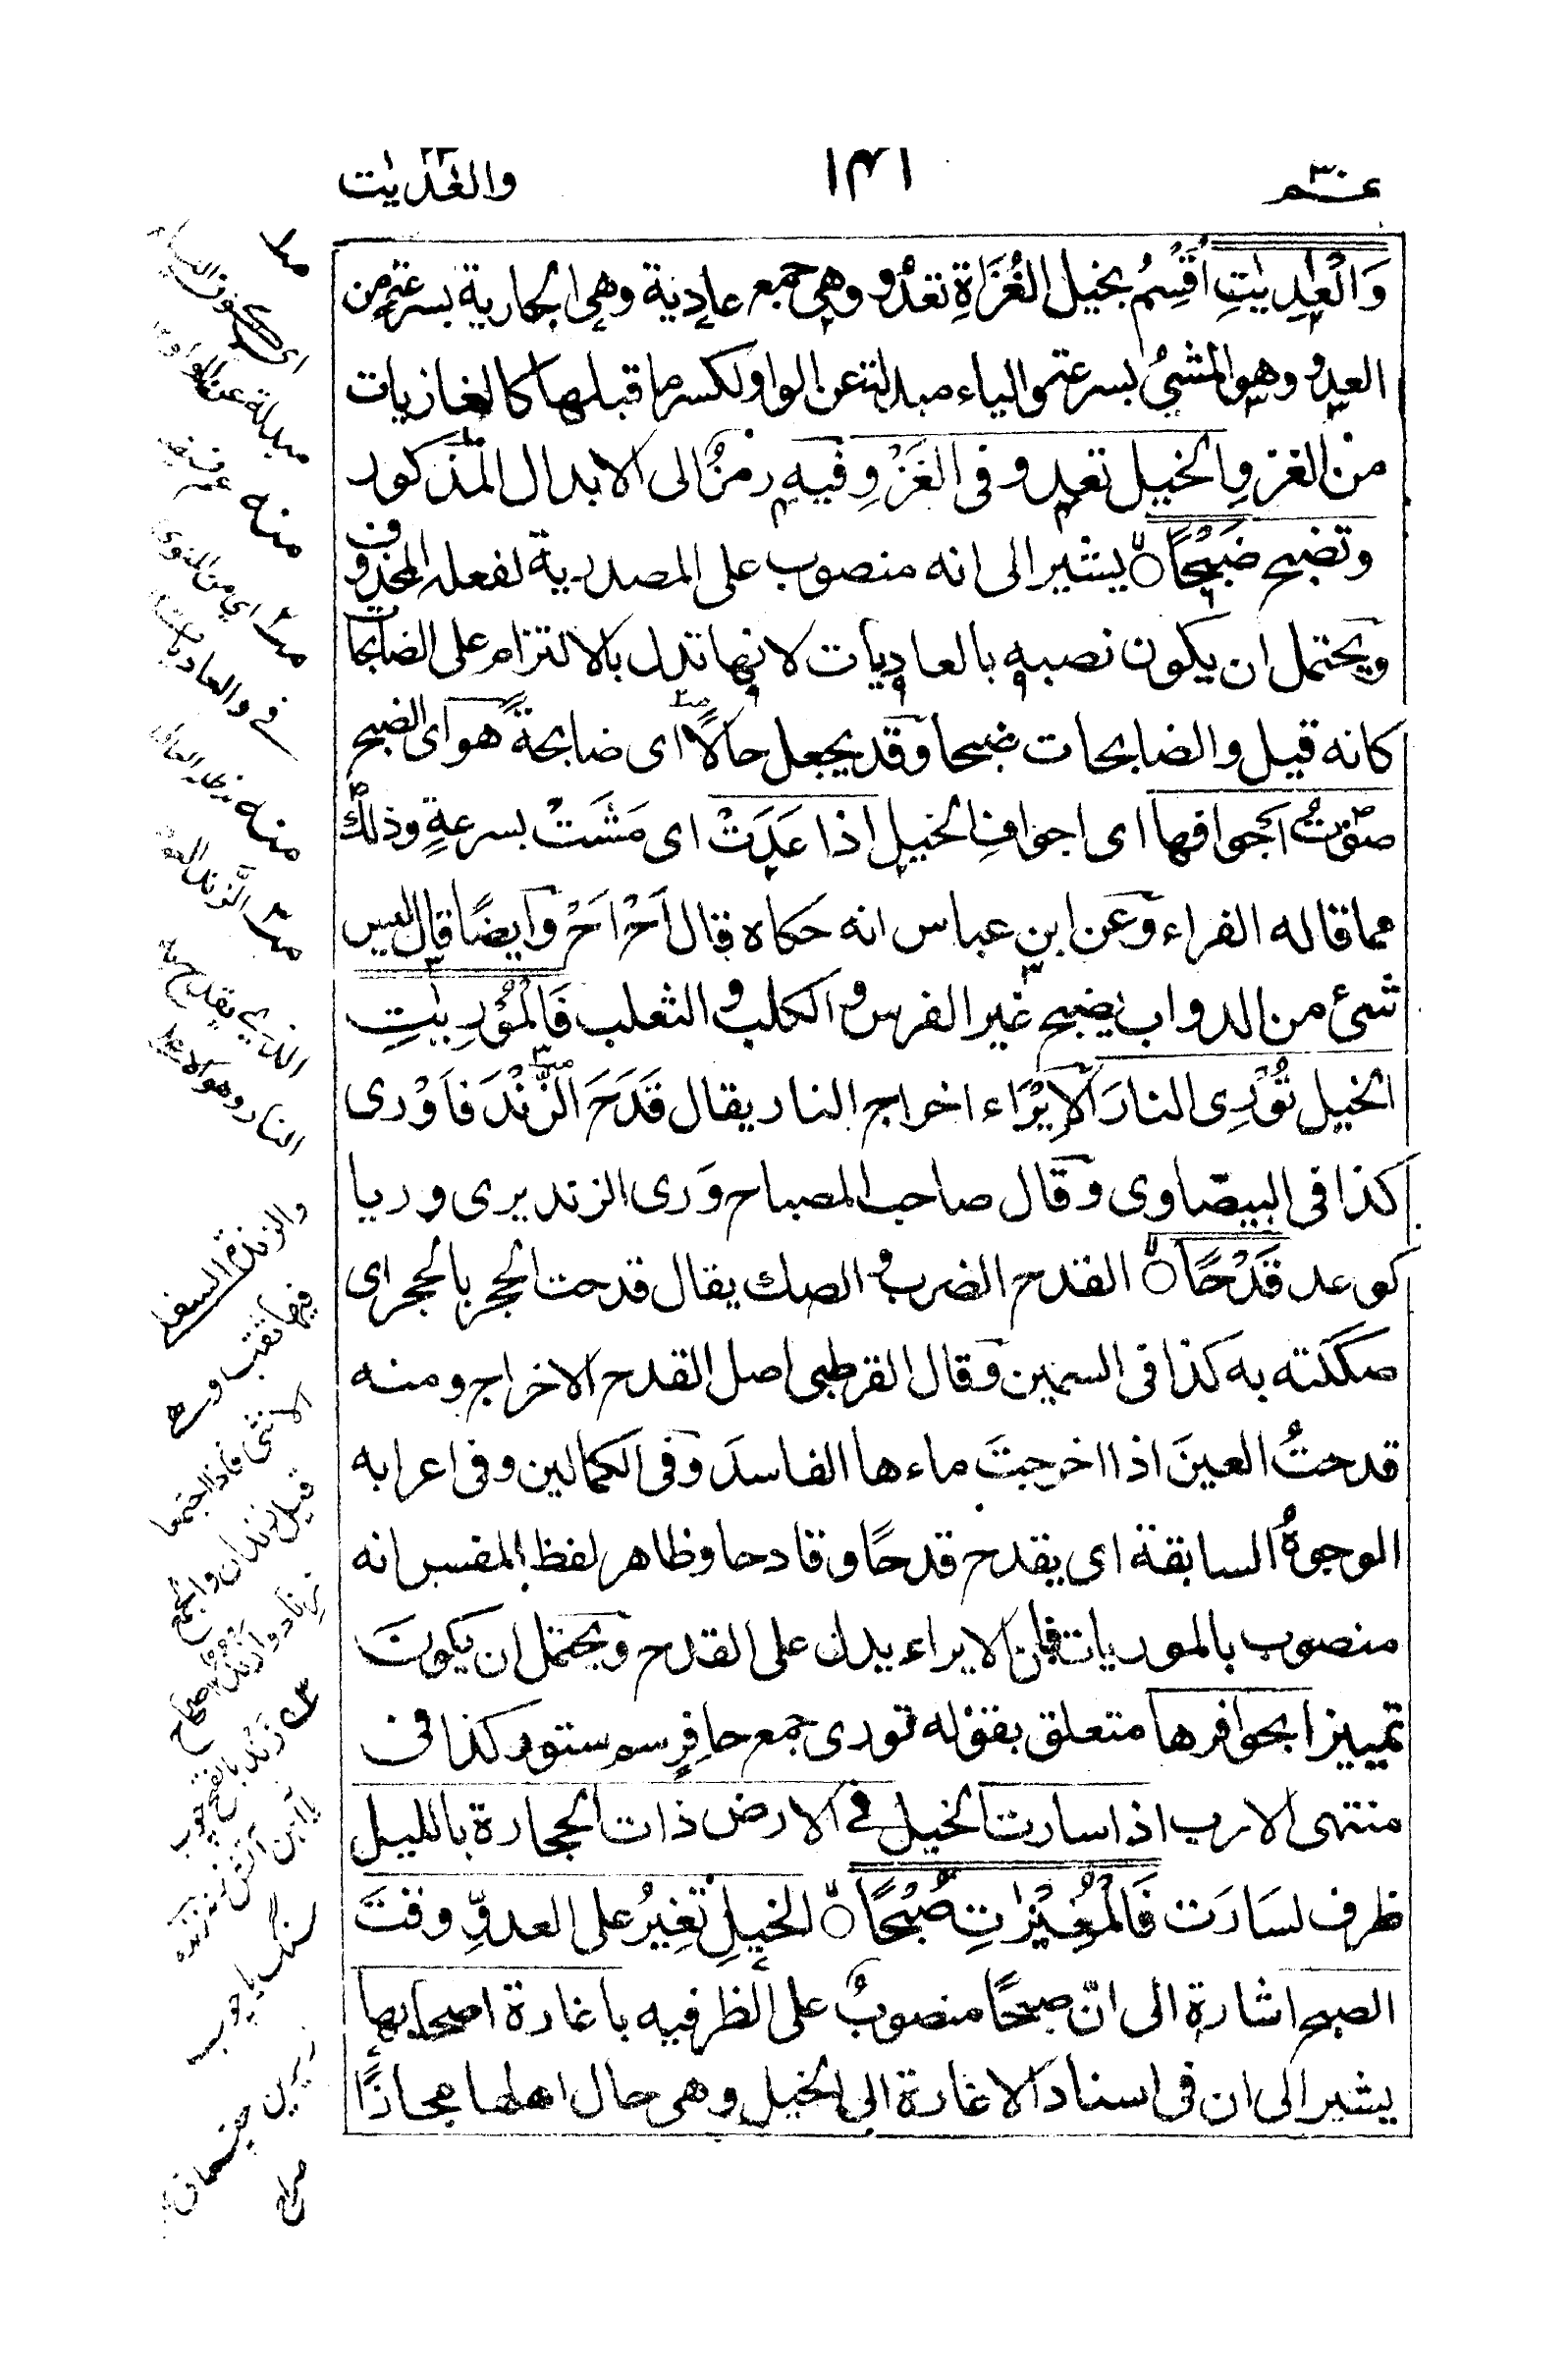 عم ٣٠
١٤١
والعٰدیٰت
وَالْعٰدِیٰتِ اُقْسِمُ بخيل الغُزَاةِ تعدُو وهي جمع عادية وهي الجارية بسرعة من
العدو وهو المشيُ بسرعة والياء مبدلة عن الواو لكسر ما قبلها كالغازيات
من الغزوِ الخيل تعدو فى الغَزْوِ فيه رمزٌ الى الابدال المذكور
وتضبح ضَبْحًا يشير الى انه منصوب على المصدرية لفعله المحذوف
ويحتمل ان يكون نصبه بالعاديات لانها تدل بالالتزام على الضابحات
كانه قيل والضابحات ضبحا وقد يجعل حالًا اى ضابحةً هو اى الضبح
صوتُ اجوافها اى اجوافِ الخيل اذا عَدَتْ اى مَشَتْ بسرعةٍ وذلك
مما قاله الفراء وعن ابن عباس انه حكاه فقال اَحْ اَحْ وايضًا قال ليس
شئ من الدواب يضبح غير الفرس و الكلب و الثعلب فَالْمُوْرِيٰتِ
الخيل تُوْرِى النارَ الاِيْرَاء اخراج النار يقال قَدَحَ الزَّنْدَ فَاَوْرى
كذا فى البيضاوى وقال صاحب المصباح وَرى الزند يرى وريا
كوعد قَدْحًا القدح الضرب و الصك يقال قدحت الحجر بالحجر اى
صككته به كذا فى السمين وقال القرطبى اصل القدح الاخراج ومنه
قدحتُ العينَ اذا اخرجتَ ماءها الفاسدَ وفى الكمالين وفى اعرابه
الوجوهُ السابقة اى يقدح قدحًا وقادحا وظاهر لفظ المفسر انه
منصوب بالموريات فان الايراء يدل على القدح ويحتمل ان يكونَ
تمييزا بحوافرها متعلق بقوله تورى جمع حافِرٍ سم ستور كذا فى
منتهى الارب اذا سارت الخيل فى الارض ذات الحجارة بالليل
ظرف لسَارَت فَالْمُغِيْرٰتِ صُبْحًا الخيلِ تُغِيْرُ على العدوِّ وقتَ
الصبح اشارة الى انّ صبحًا منصوبٌ على الظرفيه باغارة اصحابها
يشير الى ان فى اسناد الاغارة الى الخيل وهى حال اهلها مجازًا
منه
اي من المنوى
فى والعاديات
منه
الذى يقدح به
النار وهو الاعلى
والزندة السفلى
فيها ثقب وهى
الانثى فاذا اجتمعا
قيل زندان والجمع
زناد وازند صحاح
زند بالفتح چوب
سنگ یا چوب